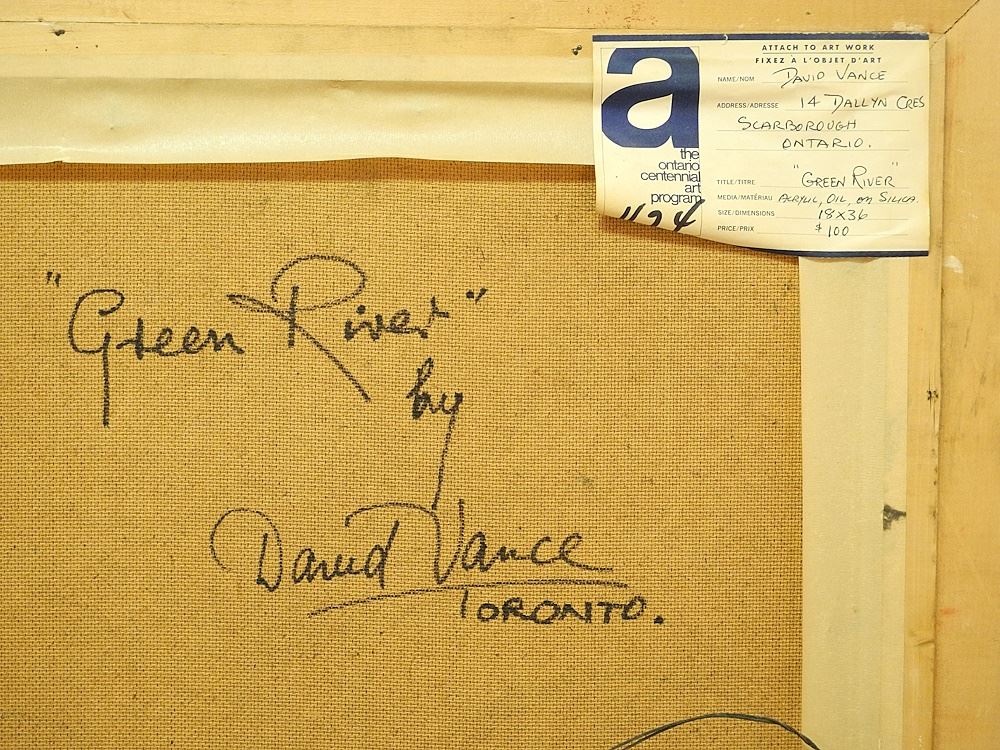 ATTACH TO ART WORK
FIXEZ A L'OBJET D'ART
a
the
ontario
centennial
art
program
NAME/NOM DAVID VANCE
ADDRESS/ADRESSE 14 DALLYN CRES
SCARBOROUGH
ONTARIO.
TITLE/TITRE "GREEN RIVER"
MEDIA/MATÉRIAU ACRYLIC, OIL, on SILICA.
SIZE/DIMENSIONS 18X36
PRICE/PRIX $100
"Green River"
by
David Vance
TORONTO.